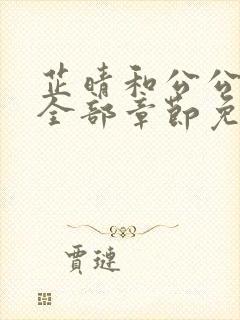 芷晴和公公
全部章节免
贾琏